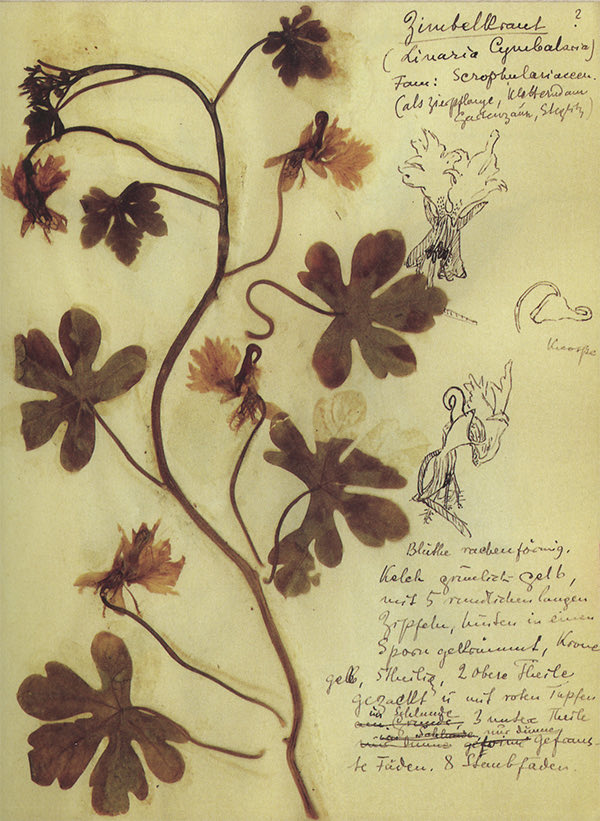 ?
Zimbelkraut
(Linaria Cymbalaria)
Fam: Scrophulariaceen.
(als Zierpflanze, Kletternd am
Gartenzaun, Steglitz)
Knospe
Blüthe rachenförmig.
Kelch grünlich gelb,
mit 5 rundlichen langen
Zipfeln, hinten in einen
Sporn gekrümmt, Krone
gelb, 5theilig, 2 obere Theile
gezackt u mit roten Tupfen
im Schlunde
3 untere Theile
nur dünne
gefrans-
te Fäden. 8 Staubfäden.